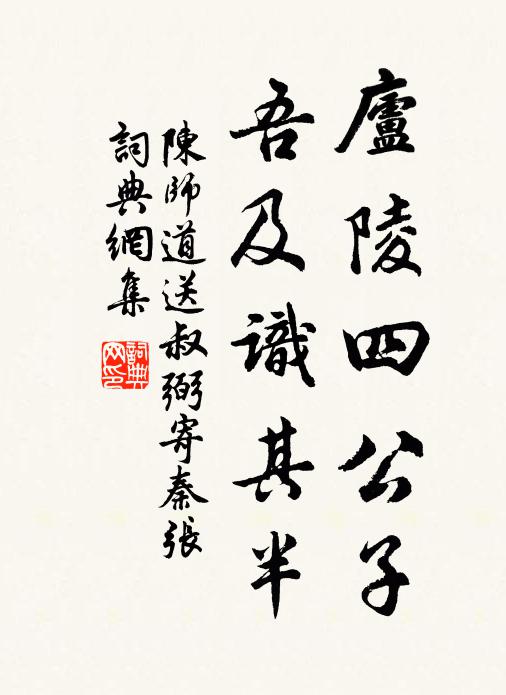 廬陵四公子
吾及識其半
陳師道送叔弼寄秦張
詞典網集
詞典网印